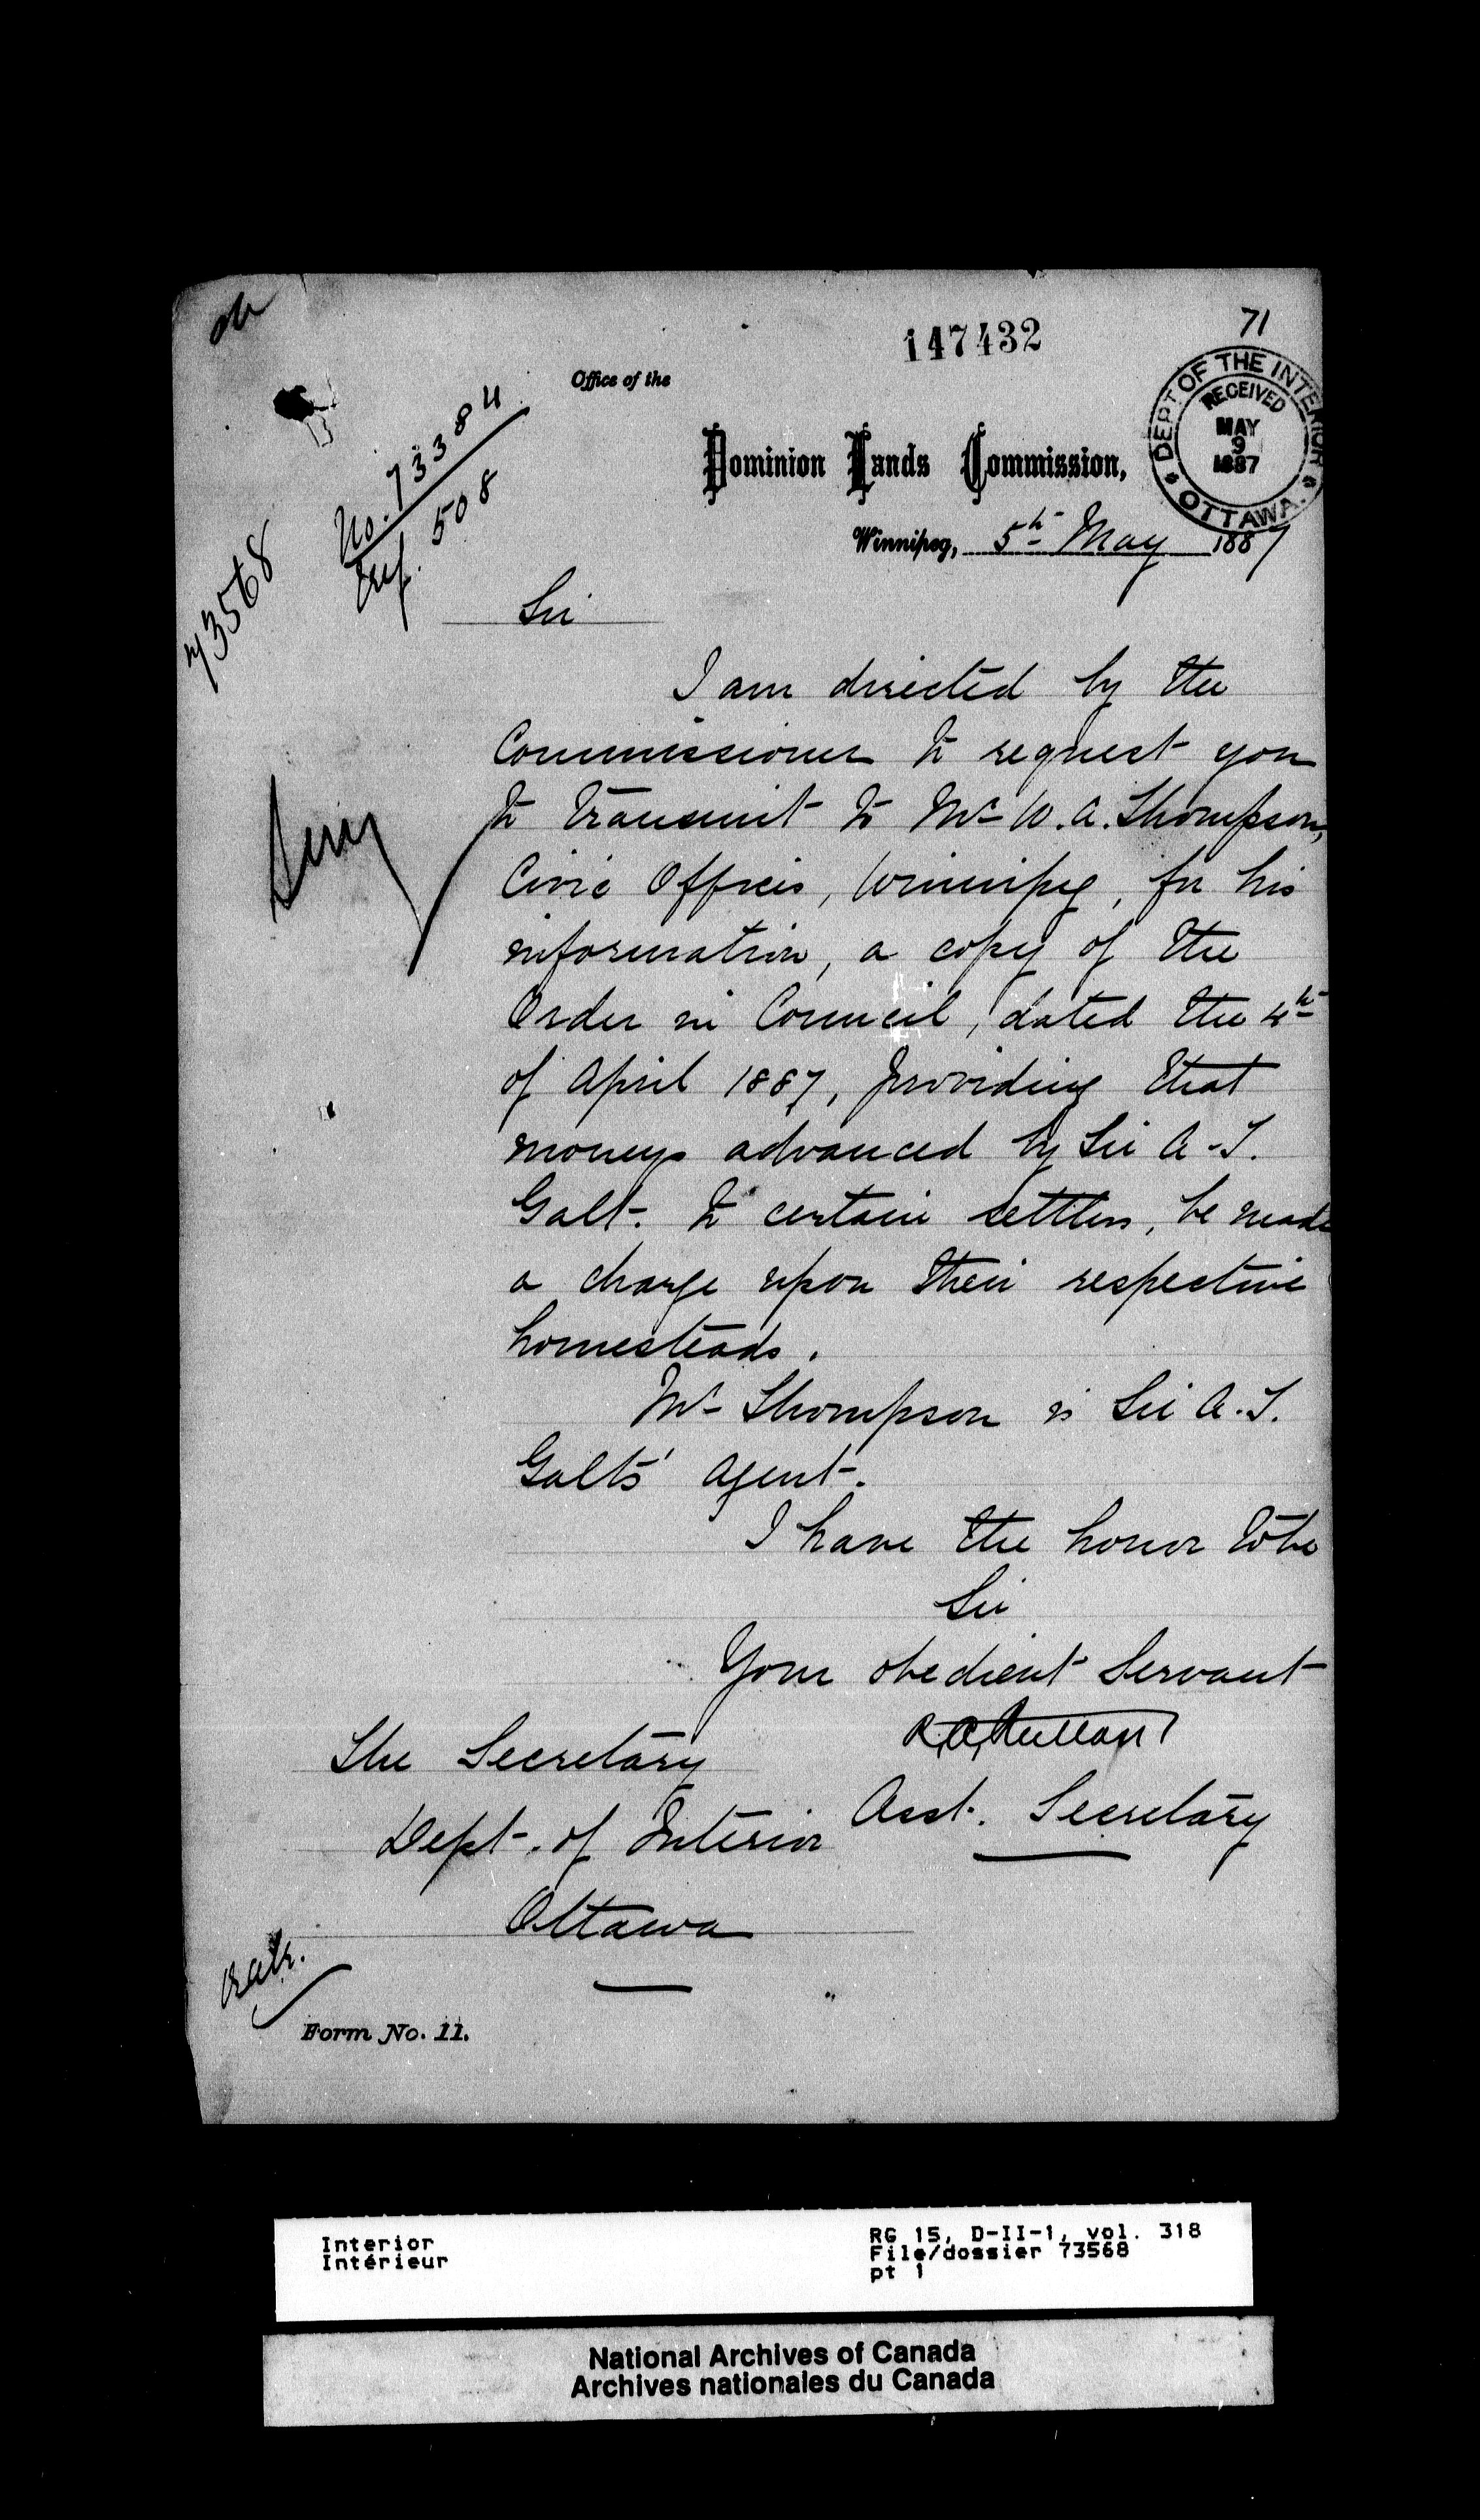 147432
71
Office of the
Dominion Lands Commission,
DEPT OF THE INTERIOR
RECEIVED
MAY
9
1887
OTTAWA.
Winnipeg, 5th May 1887
No. 73384
Ref. 508
73568
Sir
I am directed by the
Commissioner to request you
to transmit to Mr W. A. Thompson,
Civic Offices, Winnipeg, for his
information, a copy of the
Order in Council, dated the 4th
of April 1887, providing that
moneys advanced by Sir A. T.
Galt. to certain settlers, be made
a charge upon their respective
homesteads.
Mr Thompson is Sir A. T.
Galts' Agent.
I have the honor to be
Sir
Your obedient Servant
Asst. Secretary
The Secretary
Dept. of Interior
Ottawa
Form No. 11.
Interior
Intérieur
RG 15, D-II-1, vol. 318
File/dossier 73568
pt 1
National Archives of Canada
Archives nationales du Canada